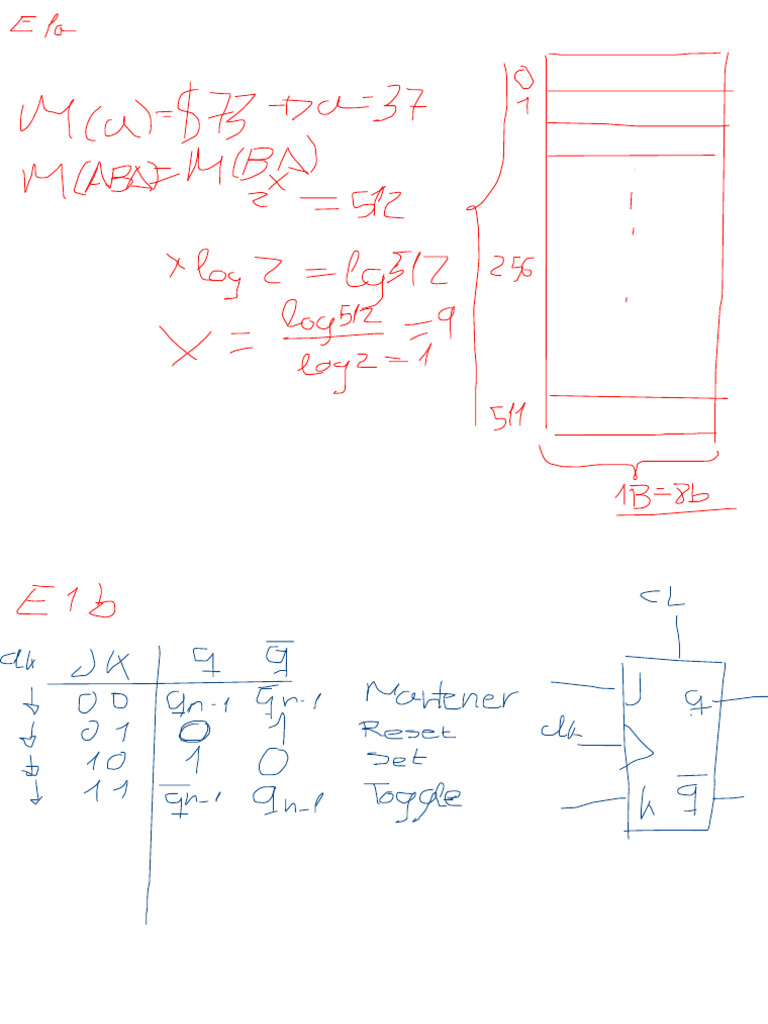 E1a
M(a)=$73 → a=37
M(ABA)=M(BA)
2^x = 512
x log 2 = lg 512
x = log 512 / log 2 = 1 = 9
0
1
256
511
1B=8b
E1b
clk J K q q̅
↓ 0 0 qn-1 q̅n-1 Mantener
↓ 0 1 0 1 Reset
↓ 1 0 1 0 set
↓ 1 1 q̅n-1 qn-1 Toggle
CL
J q
clk
k q̅